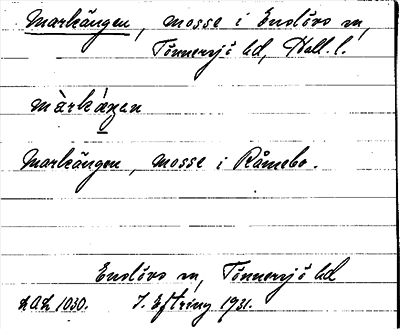 Markängen, mosse i Enslövs sn,
Tönnersjö hd, Hall. l.
màrkàŋən
Markängen, mosse i Råmebo.
Enslövs sn, Tönnersjö hd
LAL 1030. J. Eftring 1931.